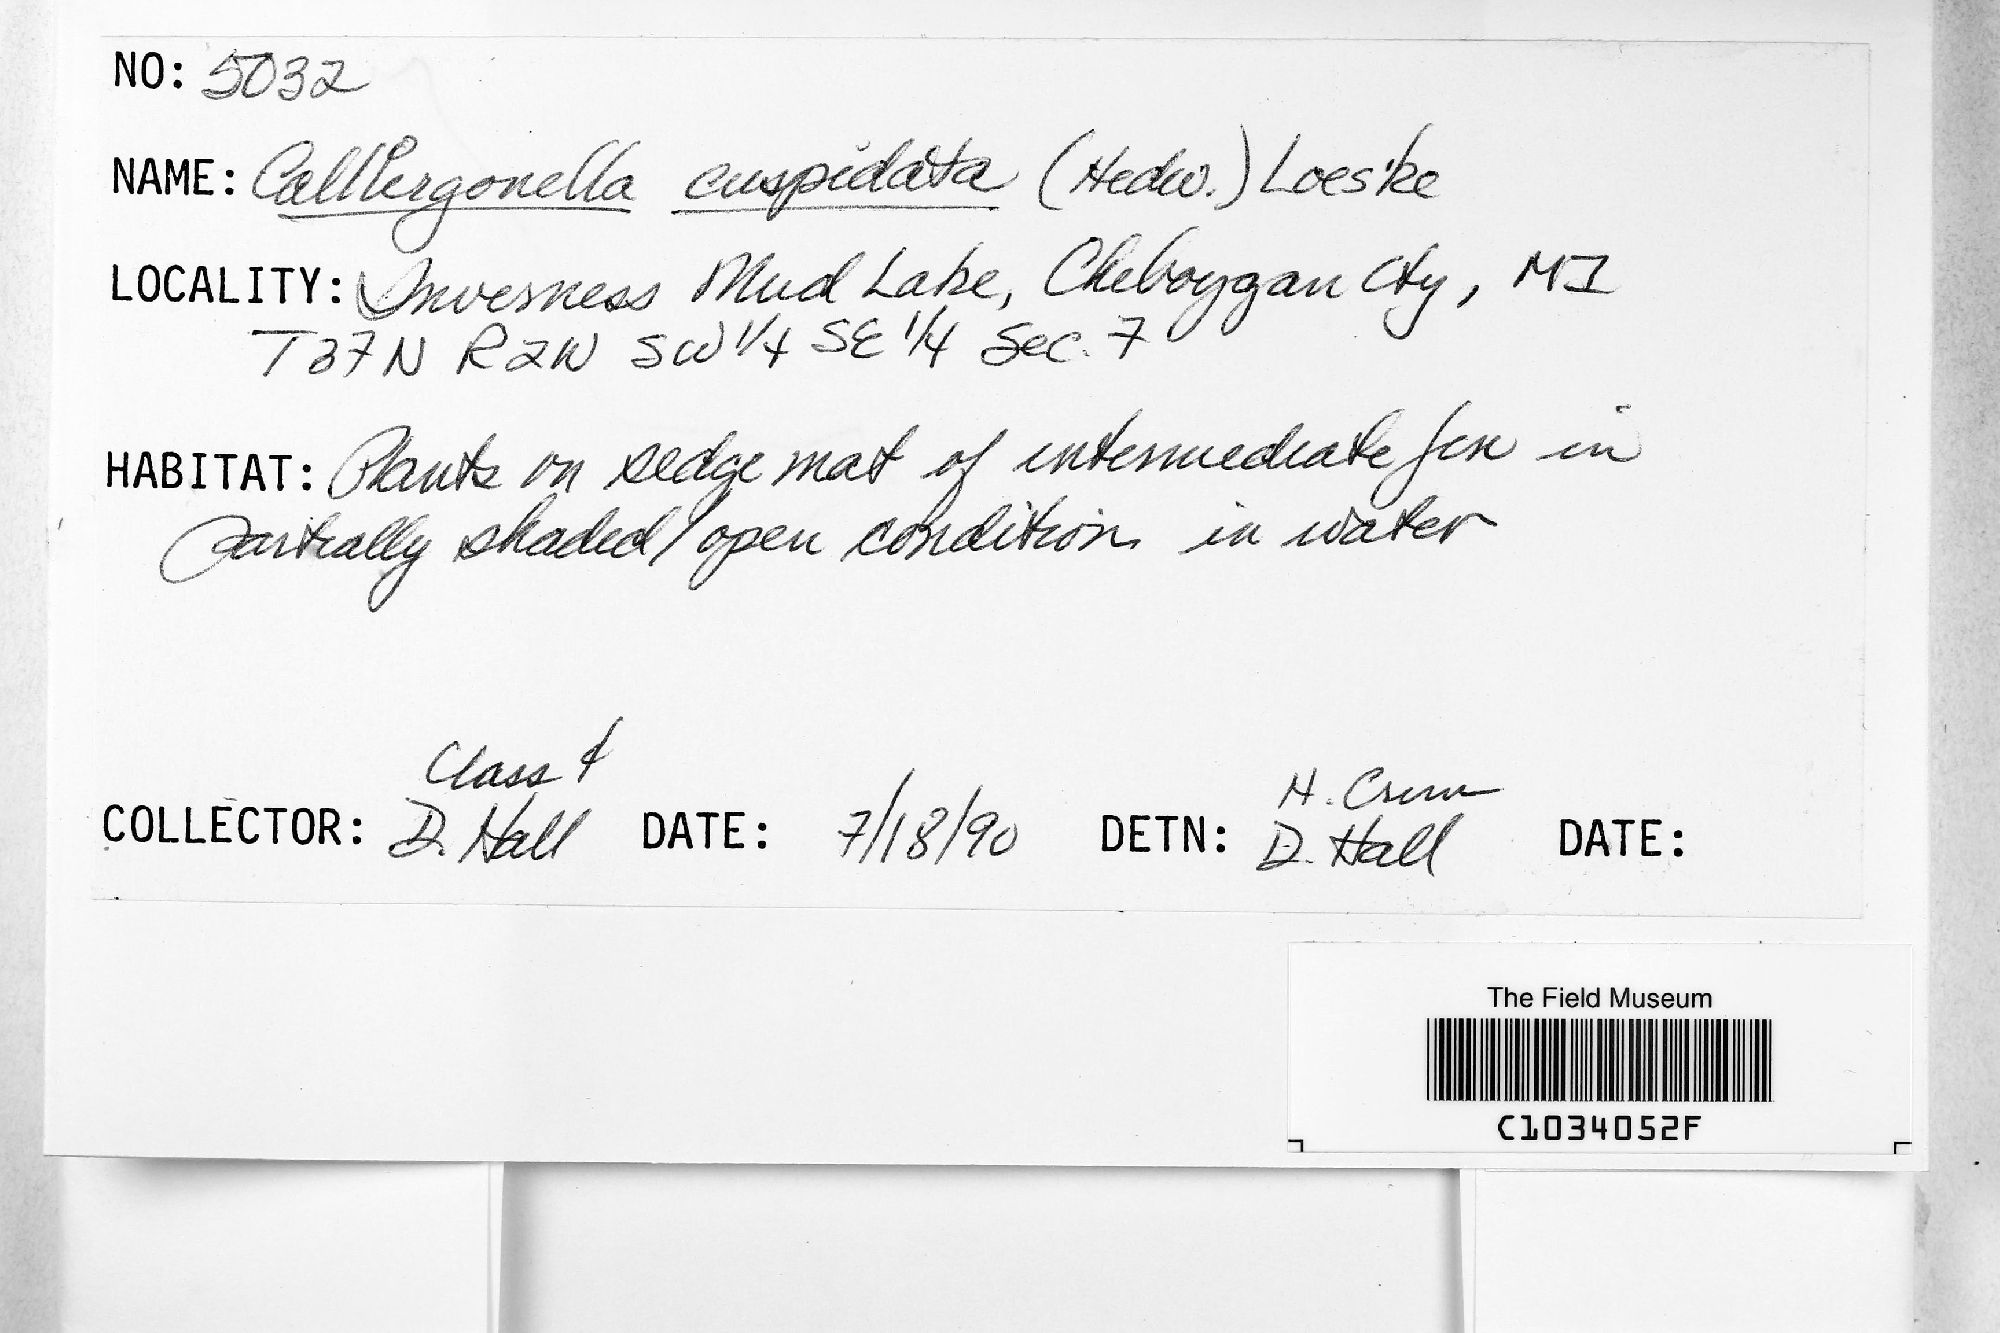 NO: 5032
NAME: Calliergonella cuspidata (Hedw.) Loeske
LOCALITY: Inverness Mud Lake, Cheboygan Cty, MI
T37N R2W SW 1/4 SE 1/4 Sec. 7
HABITAT: Plants on sedge mat of intermediate fen in
partially shaded/open condition in water
Class &
COLLECTOR: D. Hall DATE: 7/18/90 DETN: H. Crum D. Hall DATE:
The Field Museum
C1034052F